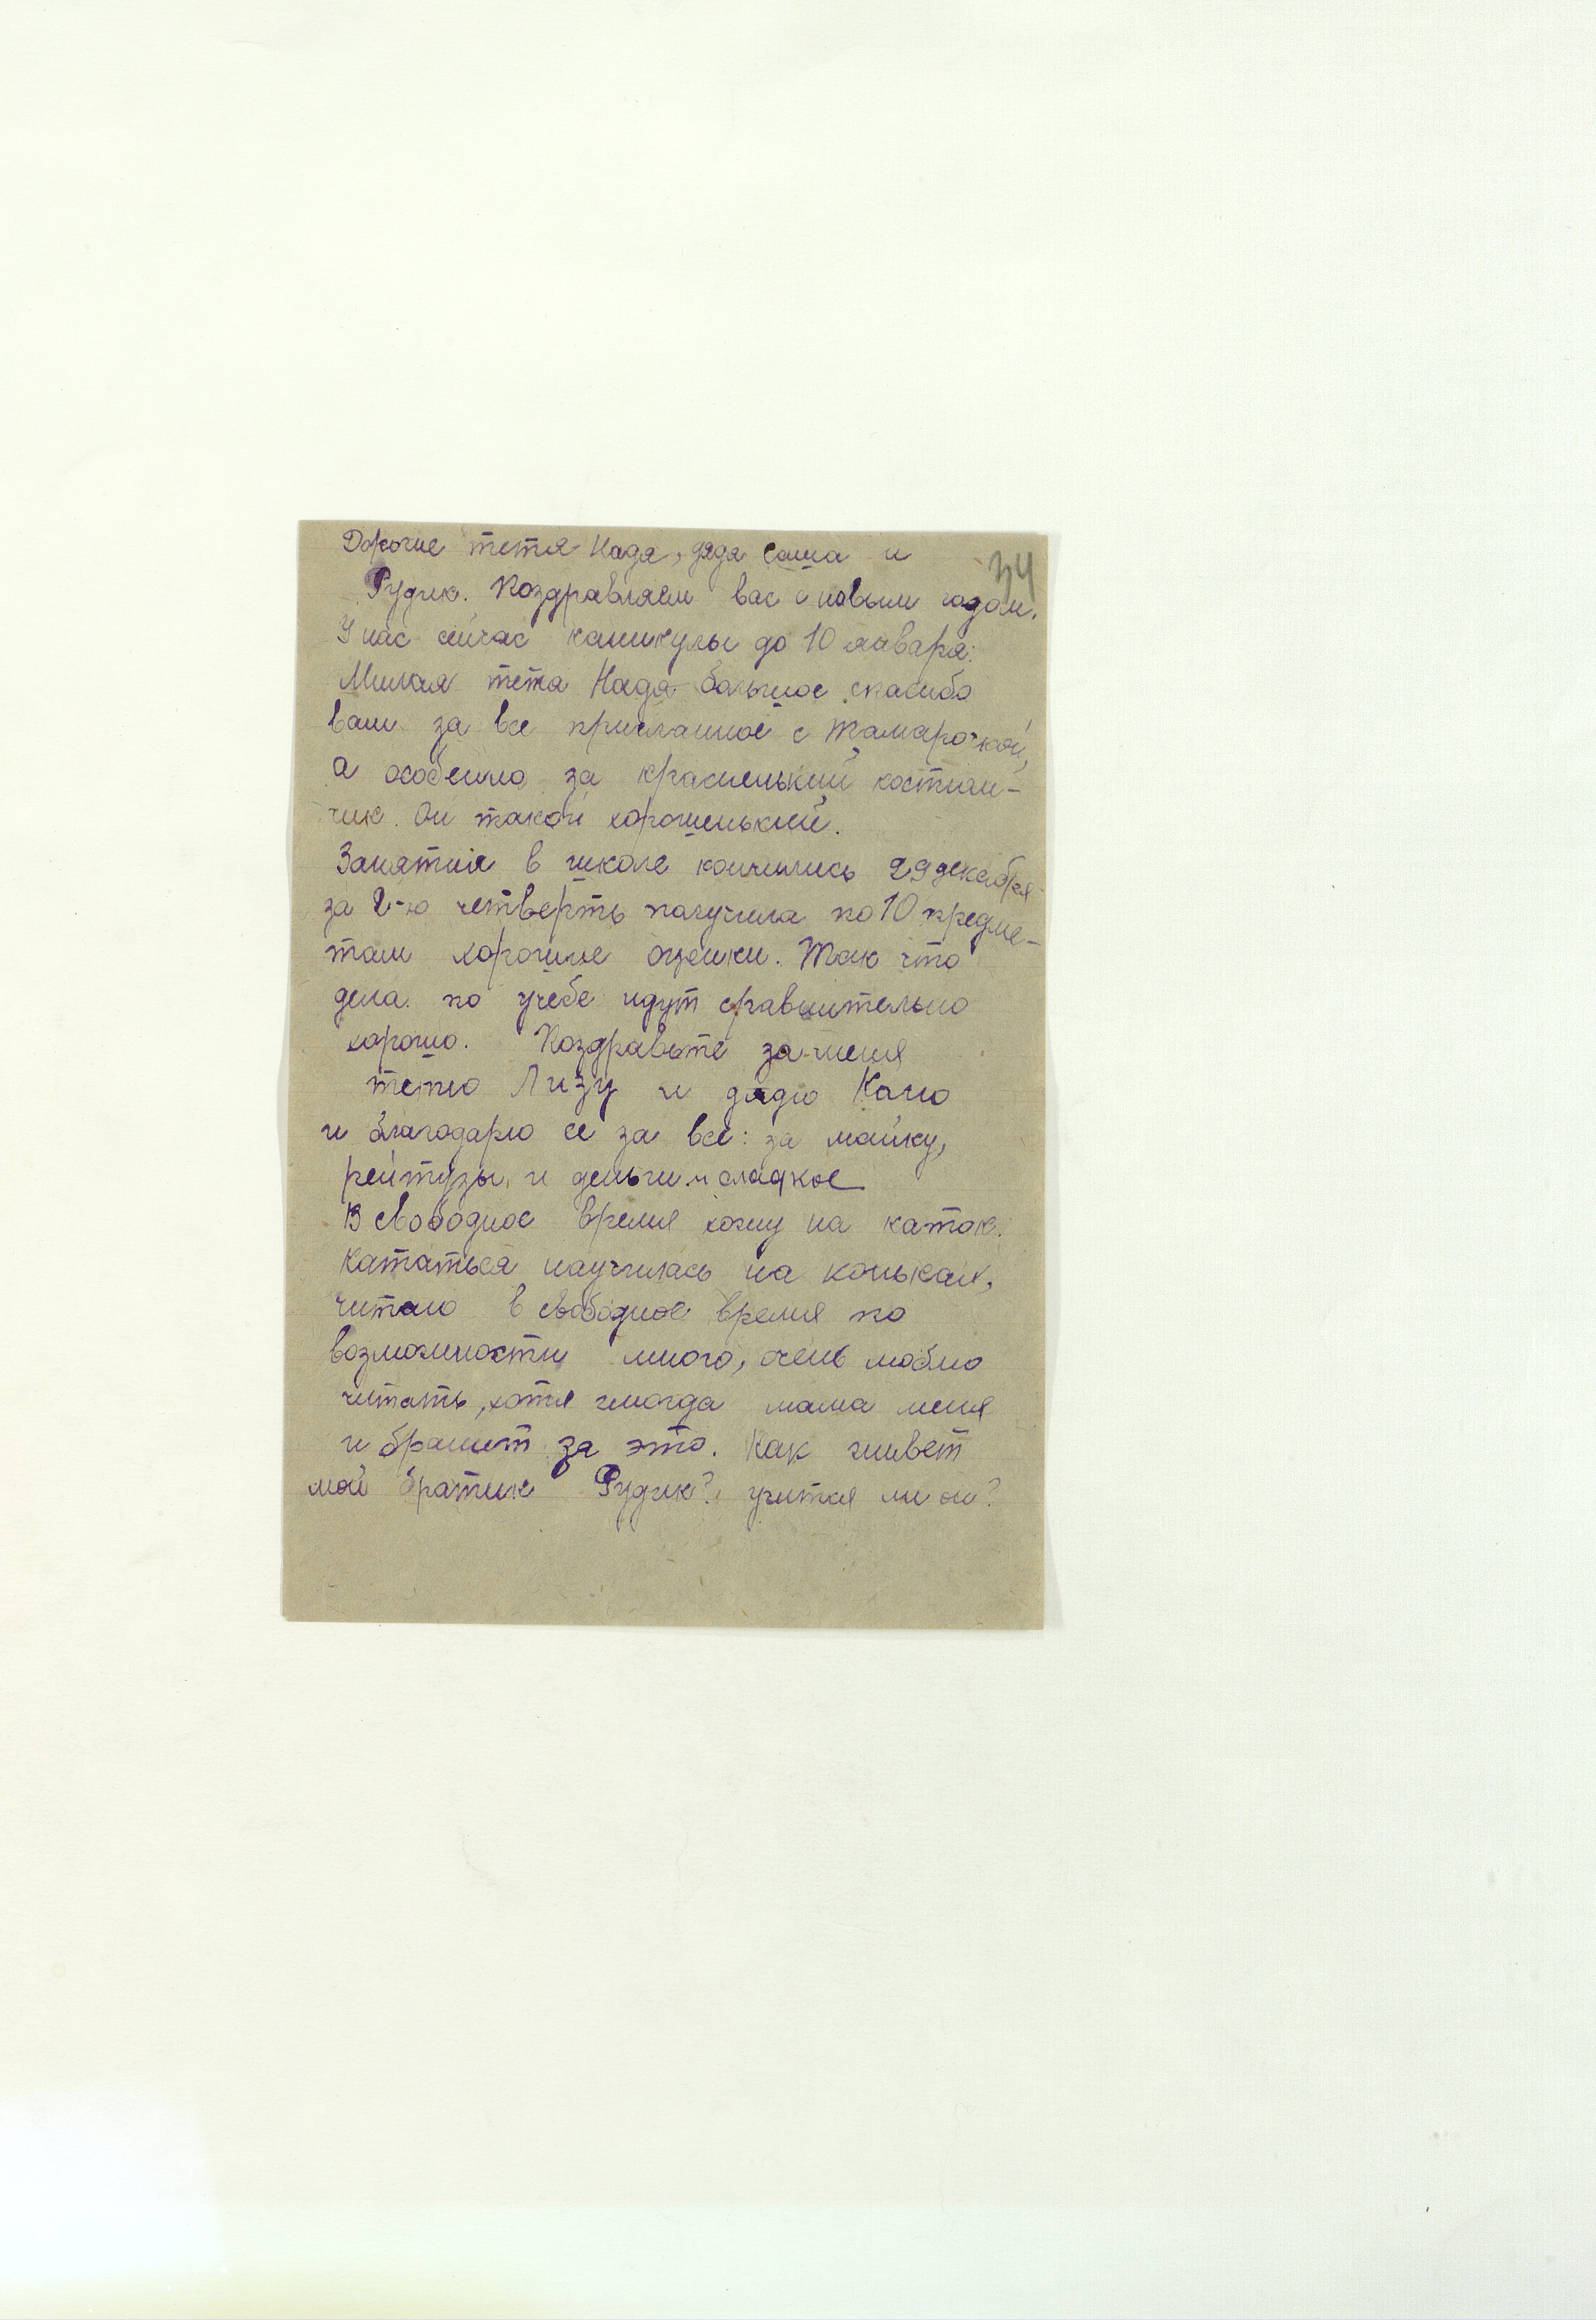 Дорогие тетя Надя, дядя Саша и
34
Рудик. Поздравляем вас с новым годом.
У нас сейчас каникулы до 10 января.
Милая тетя Надя большое спасибо
вам за все присланное с Тамарочкой,
а особенно за красненький костюм-
чик. Он такой хорошенький.
Занятия в школе кончились 29 декабря
за 2-ю четверть получила по 10 предме-
там хорошие оценки. Так что
дела по учебе идут сравнительно
хорошо. Поздравьте за меня
тетю Лизу и дядю Колю
и благодарю ее за все: за майку,
рейтузы, и деньги и сладкое
В свободное время хожу на каток.
Кататься научилась на коньках,
читаю в свободное время по
возможности много, очень люблю
читать, хотя иногда мама меня
и бранит за это. Как живет
мой братик Рудик? учится ли он?